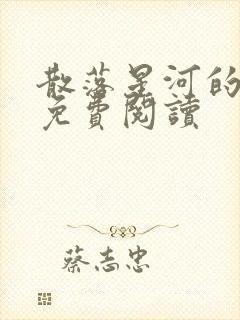 散落星河的
免費閱讀
蔡志忠